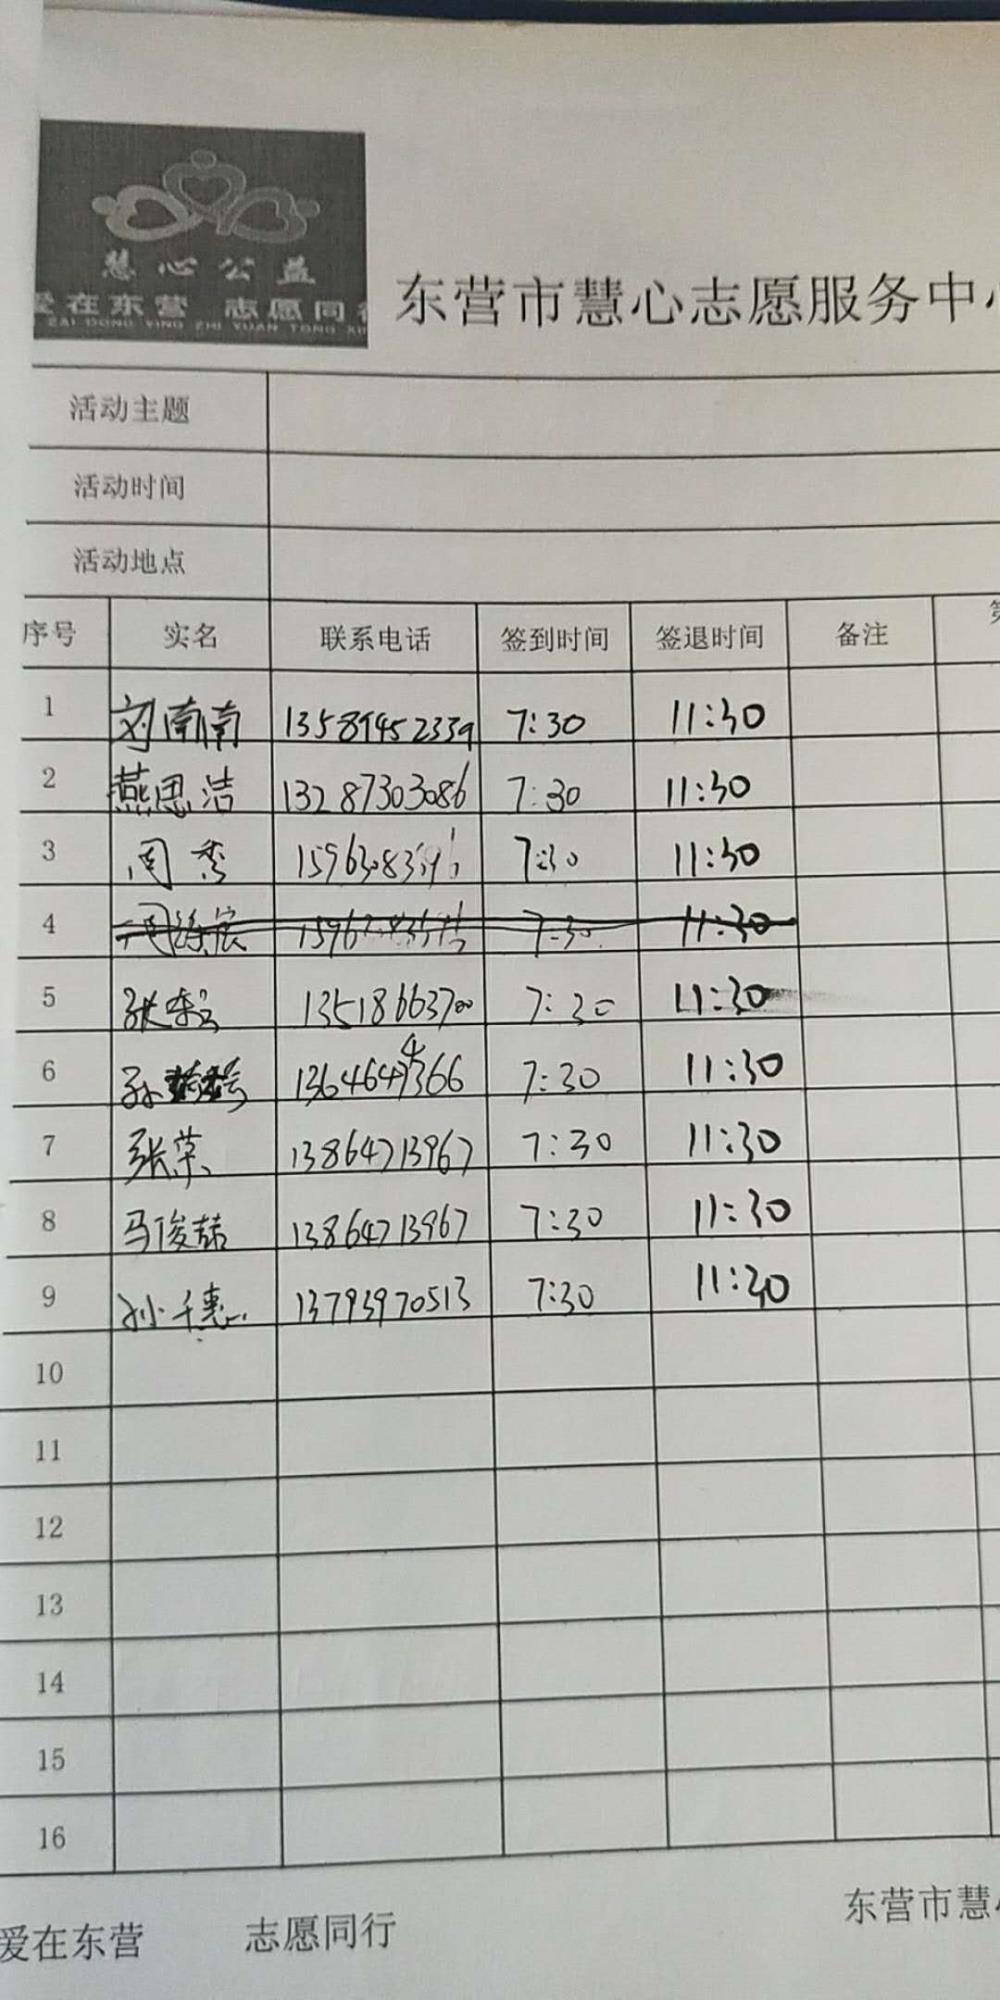 慧心公益
爱在东营 志愿同行
ZAI DONG YING ZHI YUAN TONG XIN
东营市慧心志愿服务中心
活动主题
活动时间
活动地点
序号 实名 联系电话 签到时间 签退时间 备注
1 刘南南 13589452339 7:30 11:30
2 燕思洁 13287303086 7:30 11:30
3 周秀 7:30 11:30
4 7:30 11:30
5 13518663700 7:30 11:30
6 孙 7:30 11:30
7 张荣 13864713967 7:30 11:30
8 马俊喆 13864713967 7:30 11:30
9 孙千惠 13793970513 7:30 11:30
10
11
12
13
14
15
16
爱在东营 志愿同行 东营市慧